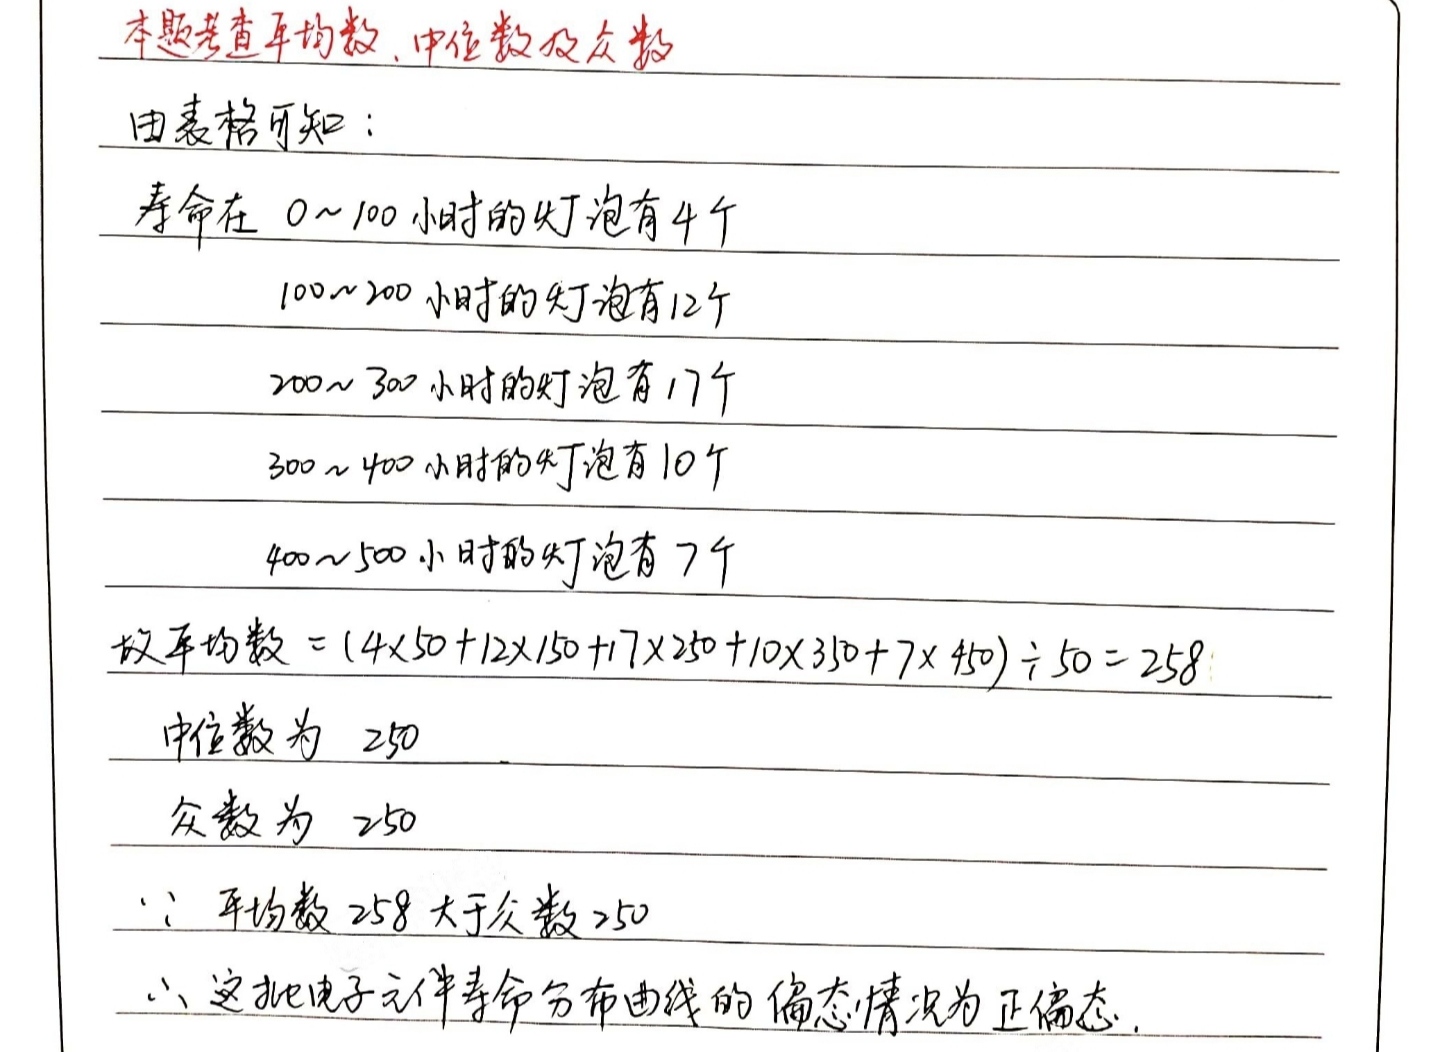 本题考查平均数、中位数及众数
由表格可知：
寿命在 0~100小时的灯泡有4个
100~200小时的灯泡有12个
200~300小时的灯泡有17个
300~400小时的灯泡有10个
400~500小时的灯泡有7个
故平均数=(4×50+12×150+17×250+10×350+7×450)÷50=258
中位数为 250
众数为 250
∵ 平均数258大于众数250
∴ 这批电子元件寿命分布曲线的偏态情况为正偏态.